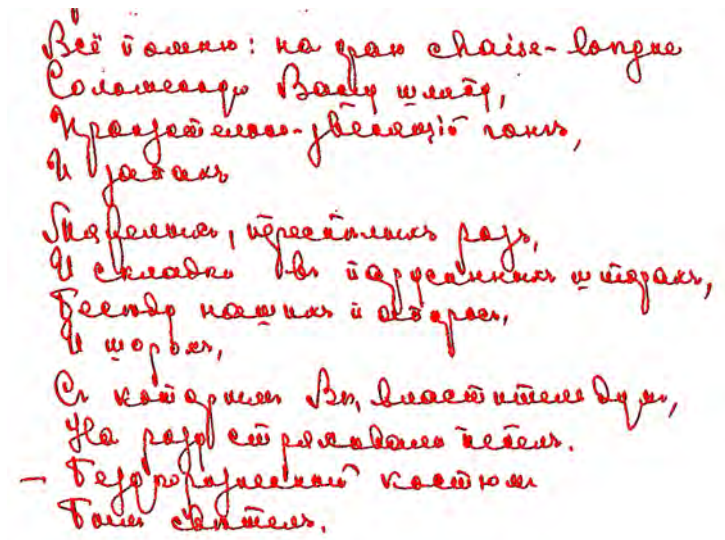 Всё помню: на краю chaise-longue
Соломенную Вашу шляпу,
Пронзительно-звенящій гонгъ,
И запахъ
Тяжелыхъ, переспѣлыхъ розъ,
И складки въ парусинныхъ шторахъ,
Бесѣду нашихъ папиросъ,
И шорохъ,
Съ которымъ Вы, властитель думъ,
На розу стряхивали пепелъ.
— Безукоризненный костюмъ
Былъ свѣтелъ.